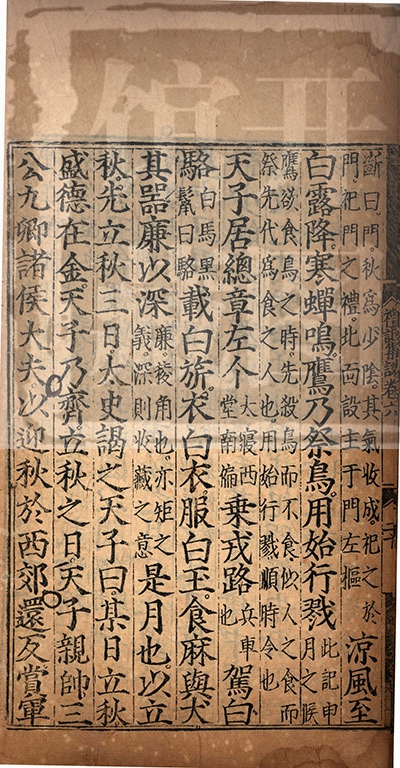 禮記集說卷六
斷曰門秋爲少陰其氣收成祀之於
門祀門之禮北面設主于門左樞
涼風至
白露降寒蟬鳴鷹乃祭鳥用始行戮
此記申
月之候
鷹欲食鳥之時先殺鳥而不食似人之食而
祭先代爲食之人也用始行戮順時令也
天子居總章左个
太寢西
堂南偏
乘戎路
兵車
也
駕白
駱
白馬黑
鬣曰駱
載白旂衣白衣服白玉食麻與犬
其器廉以深
廉稜角也亦矩之
義深則收藏之意
是月也以立
秋先立秋三日太史謁之天子曰某日立秋
盛德在金天子乃齊立秋之日天子親帥三
公九卿諸侯大夫以迎秋於西郊還反賞軍